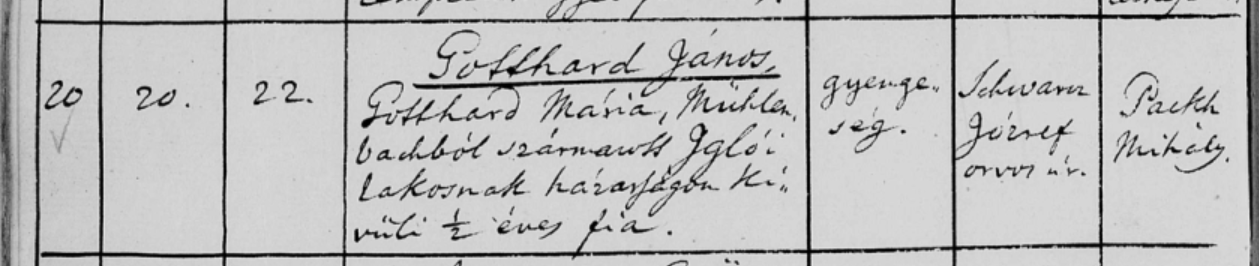 20
20.
22.
Gotthard János,
Gotthard Mária, Mühlen,
bachból származott Iglói
lakosnak házasságon ki„
vüli ½ éves fia.
gyenge„
ség.
Schwarz
József
orvos úr.
Packh
Mihály.